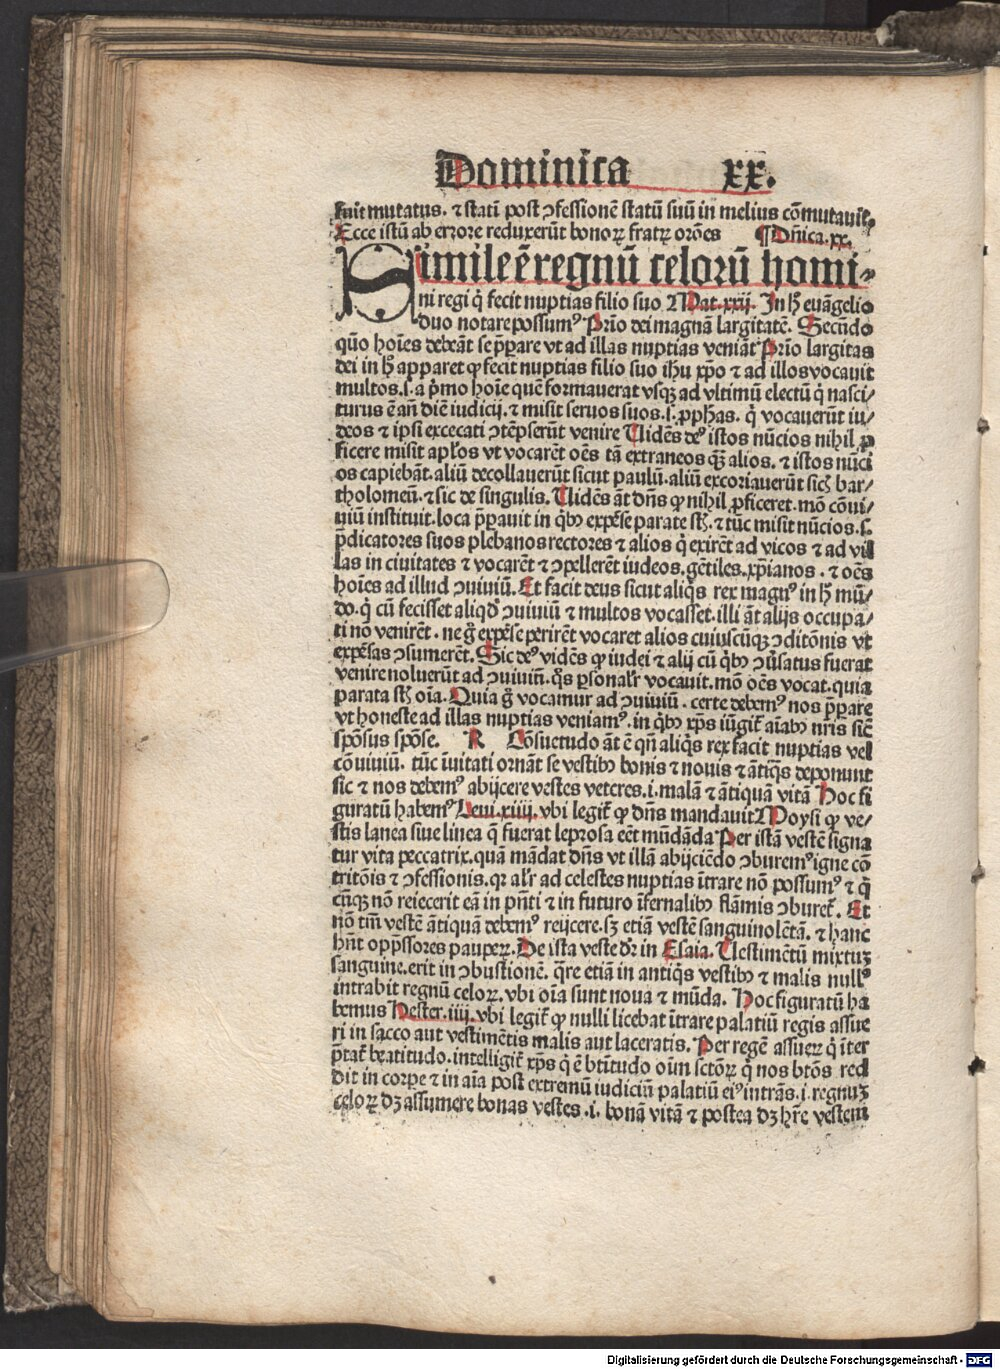 Dominica xx.
fuit mutatus. ⁊ statī post ɔfessionē statū suū in melius cōmutauit.
Ecce istū ab errore reduxerūt bonoꝝ fratꝝ orōes ¶ Dn̄ica.xx.
Simile ē regnū celorū homi-
ni regi q̇ fecit nuptias filio suo Mat.xxij. In h̄ euāgelio
duo notare possumꝰ Prīo dei magnā largitatē. Secūdo
quō hoīes debeāt se p̄parare vt ad illas nuptias veniāt Prīo largitas
dei in h̄ apparet ꝙ fecit nuptias filio suo ihu xp̄o ⁊ ad illos vocauit
multos.i.a ṗmo hoīe quē formauerat vsqꝫ ad vltimū electū q̇ nasci/
turus ē an̄ diē iudicij. ⁊ misit seruos suos.i. ꝓphas. q̇ vocauerūt iu/
deos ⁊ ipsi excecati ɔtēpserūt venire Uidēs deꝰ istos nūcios nihil ꝓ
ficere misit apl'os vt vocarēt oēs tā extraneos qꝫ alios. ⁊ istos nūci
os capiebāt. aliū decollauerūt sicut paulū. aliū excoriauerūt sicꝫ bar/
tholomeū. ⁊ sic de singulis. Uidēs āt dn̄s ꝙ nihil ꝓficeret. mō cōui/
uiū instituit. loca p̄pauit in q̇bꝫ expēse parate st̄. ⁊ tūc misit nūcios.s.
p̄dicatores suos plebanos rectores ⁊ alios q̇ exirēt ad vicos ⁊ ad vil
las in ciuitates ⁊ vocarēt ⁊ ɔpellerēt iudeos. gētiles. xp̄ianos. ⁊ oēs
hoīes ad illud ɔuiuiū. Et facit deus sicut aliq̇s rex magnꝰ in h̄ mū/
do. q̇ cū fecisset aliqd' ɔuiuiū ⁊ multos vocasset. illi āt alijs occupa/
ti no venirēt. ne g̊ expēse perirēt vocaret alios cuiuscūqꝫ ɔditōnis vt
expēsas ɔsumerēt. Sic deꝰ vidēs ꝙ iudei ⁊ alij cū q̇bꝫ ɔūsatus fuerat
venire noluerūt ad ɔuiuiū. q̇s ꝑsonalr̄ vocauit. mō oēs vocat. quia
parata st̄ oīa. Quia g̊ vocamur ad ɔuiuiū. certe debemꝰ nos p̄pare
vt honeste ad illas nuptias veniamꝰ. in q̇bꝫ xp̄s iūgit' aīabꝫ nr̄is sic̄
spōsus spōse. R Cōsuetudo āt ē qn̄ aliq̇s rex facit nuptias vel
cōuiuiū. tūc īuitati ornāt se vestibꝫ bonis ⁊ nouis ⁊ ātiq̇s deponunt
sic ⁊ nos debemꝰ abijcere vestes veteres.i. malā ⁊ ātiquā vitā Hoc fi
guratū habemꝰ Leui.xiiij. vbi legit' ꝙ dn̄s mandauit Moysi ꝙ ve/
stis lanea siue linea q̄ fuerat leprosa eēt mūdāda Per istā vestē signa
tur vita peccatrix. quā mādat dn̄s vt illā abijciēdo ɔburemꝰ igne cō
tritōis ⁊ ɔfessionis. qꝛ al'r ad celestes nuptias ītrare nō possumꝰ ⁊ q̇
cūqꝫ nō reiecerit eā in pn̄ti ⁊ in futuro īfernalibꝫ flāmis ɔburet'. Et
nō tm̄ vestē ātiquā debemꝰ reijcere. sꝫ etiā vestē sanguinolētā. ⁊ hanc
hn̄t opp̄ssores pauperꝝ. De ista veste dr̄ in Esaia. Uestimētū mixtuꝫ
sanguine. erit in ɔbustionē. qr̄e etiā in antiq̇s vestibꝫ ⁊ malis nullꝰ
intrabit regnū celoꝝ. vbi oīa sunt noua ⁊ mūda. Hoc figuratū ha
bemus Hester.iiij. vbi legit' ꝙ nulli licebat ītrare palatiū regis assue
ri in sacco aut vestimētis malis aut laceratis. Per regē assueꝝ q̇ īter
p̄tat' beatitudo. intelligit' xp̄s q̇ ē bt̄itudo oīm sctōꝝ q̇ nos bt̄os red
dit in corpe ⁊ in aīa post extremū iudiciū palatiū eiꝰ intrās.i. regnuꝫ
celoꝝ dꝫ assumere bonas vestes.i. bonā vitā ⁊ postea dꝫ hr̄e vestem
Digitalisierung gefördert durch die Deutsche Forschungsgemeinschaft - DFG